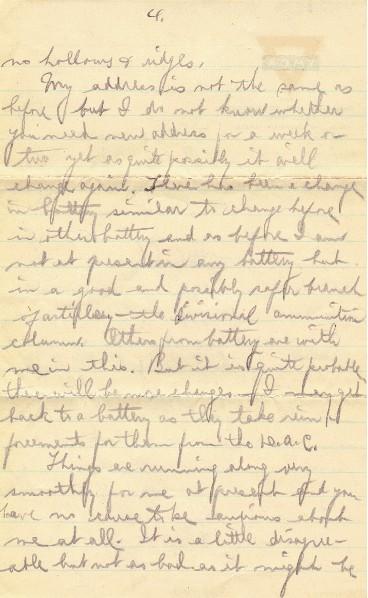 4.
no hollows & ridges.
My address is not the same as
before but I do not know whether
you need new address for a week or
two yet as quite possibly it will
change again. There has been a change
in battery similar to change before
in other battery and as before I am
not at present in any battery but
in a good and possibly safer branch
of artillery – the divisional ammunition
column. Others from battery are with
me in this. But it is quite probable
there will be more changes & I may get
back to a battery as they take rein-
forcements for them from the D.A.C.
Things are running along very
smoothly for me at present and you
have no cause to be anxious about
me at all. It is a little disagree-
able but not as bad as it might be